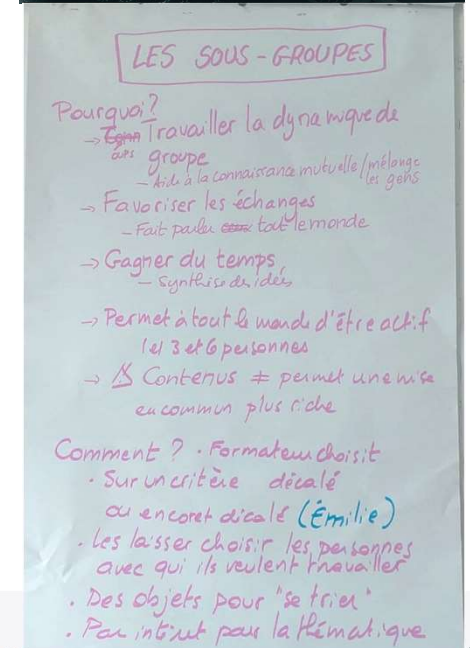 LES SOUS-GROUPES
Pourquoi?
→ Travailler la dynamique de
groupe
– Aide à la connaissance mutuelle/mélange
les gens
→ Favoriser les échanges
– Fait parler tout le monde
→ Gagner du temps
– Synthèse des idées
→ Permet à tout le monde d'être actif
3 et 6 personnes
→ ⚠ Contenus ≠ permet une mise
en commun plus riche
Comment ? • Formateur choisit
• Sur un critère décalé
ou encore + décalé (Émilie)
• Les laisser choisir les personnes
avec qui ils veulent travailler
• Des objets pour "se trier"
• Par intérêt pour la thématique